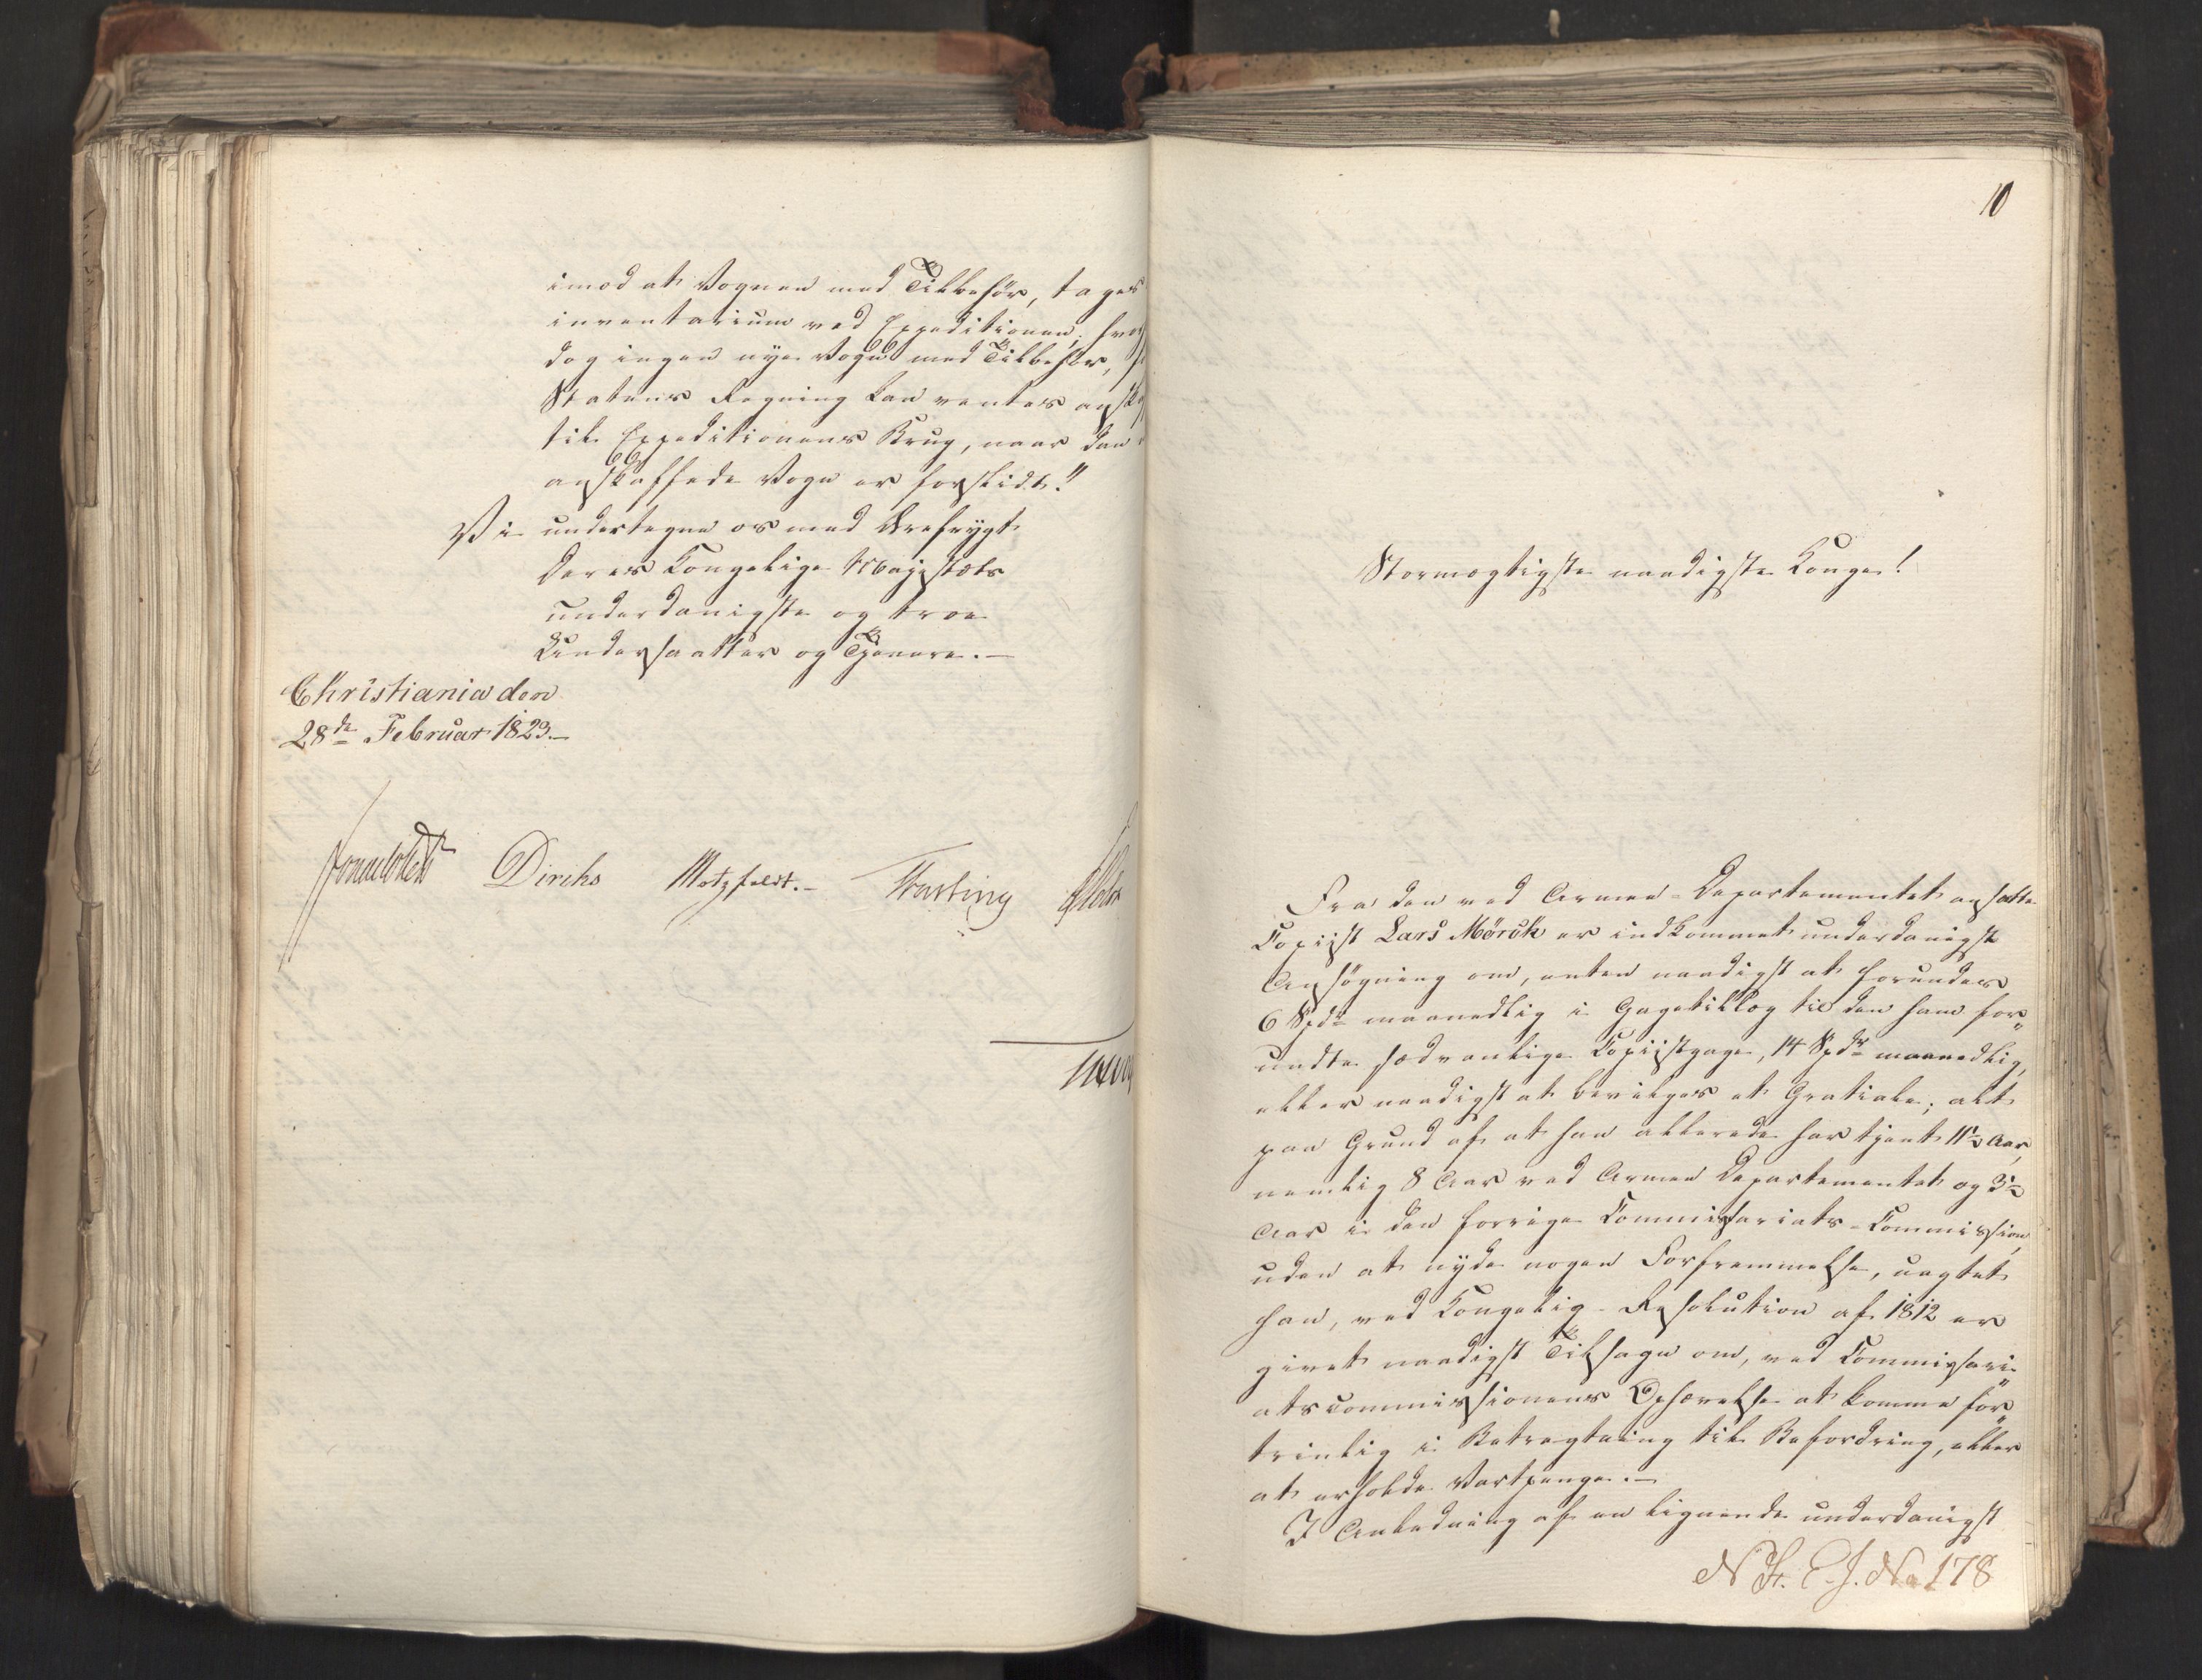 imod at Vognen med Tilbehör, tages
inventarium ved Expeditionen, hvor
dog ingen nye Vogn med Tilbehör, 
Statens Regning kan ventes ansk
til Expeditionens Brug, naar den
anskaffede Vogn er forslidt."
Vi undertegne os med Ærefrygt
Deres Kongelige Majestæts
underdanigste og troe
Undersaatter og Tjenere.—
Christiania den
28de Februar 1823.—
Sommerhielm Diricks Motzfeldt.- Fasting
10
Stormægtigste naadigste Konge!
Fra den ved Armee-Departementet ansatte
Copiist Lars Mörck er indkommet underdanigst
Ansögning om, enten naadigst at forundes
6 Spdr maanedlig i Gagetillæg til den ham for„
undte sædvanlige Copiistgage, 14 Spdr maanedlig,
eller naadigst at bevilges et Gratiale; alt
paa Grund af at han allerede har tjent 11½ Aar,
nemlig 8 Aar ved Armee Departementet og 3½
Aar i den forrige Commissariats-Commission,
uden at nyde nogen Forfremmelse, uagtet
han, ved Kongelig Resolution af 1812 er
givet naadigst Tilsagn om, ved Commissari„
atscommissionens Ophævelse at komme for„
trinlig i Betragtning til Befordring, eller
at erholde Vartpenge.—
I Anledning af en lignende underdanigst
N H. E. J. No 178